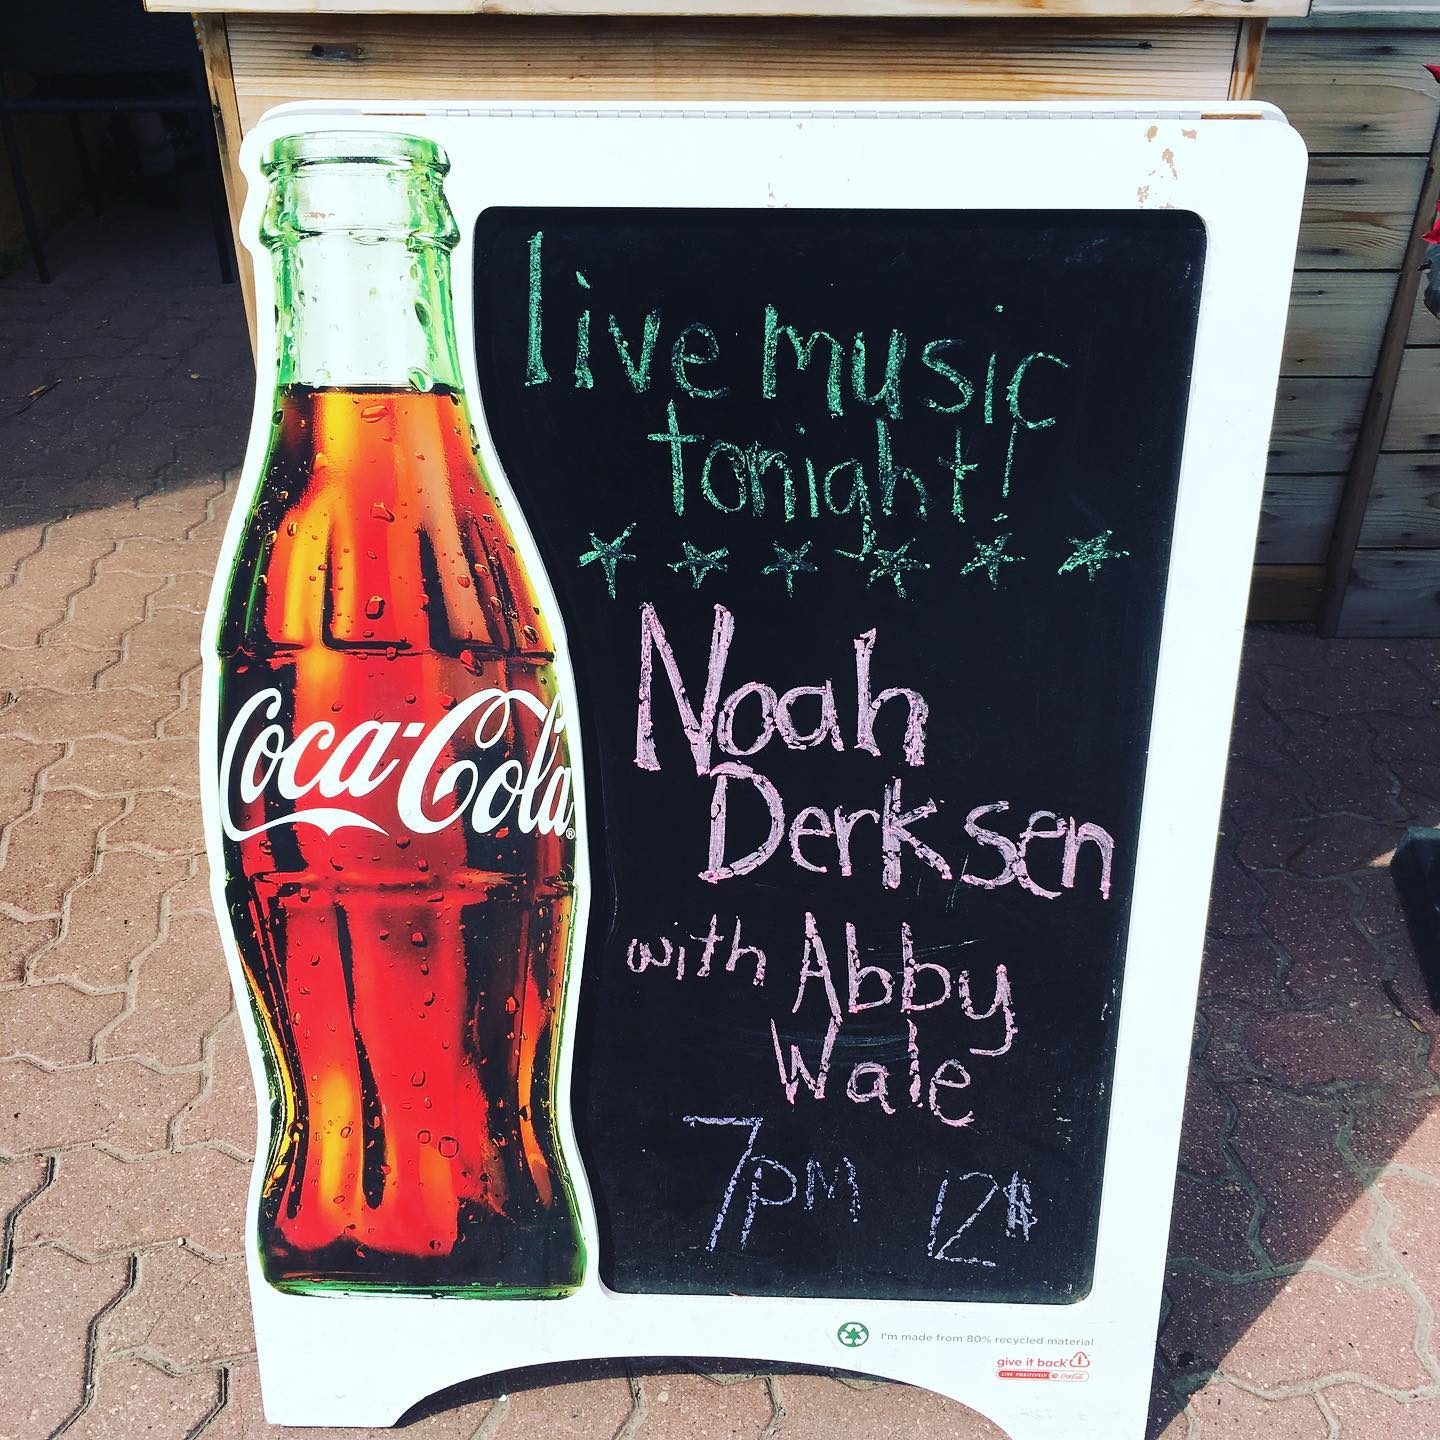 Coca-Cola®
live music
tonight!
Noah
Derksen
with Abby
Wale
7PM 12$
I'm made from 80% recycled material
give it back
LIVE POSITIVELY Coca-Cola